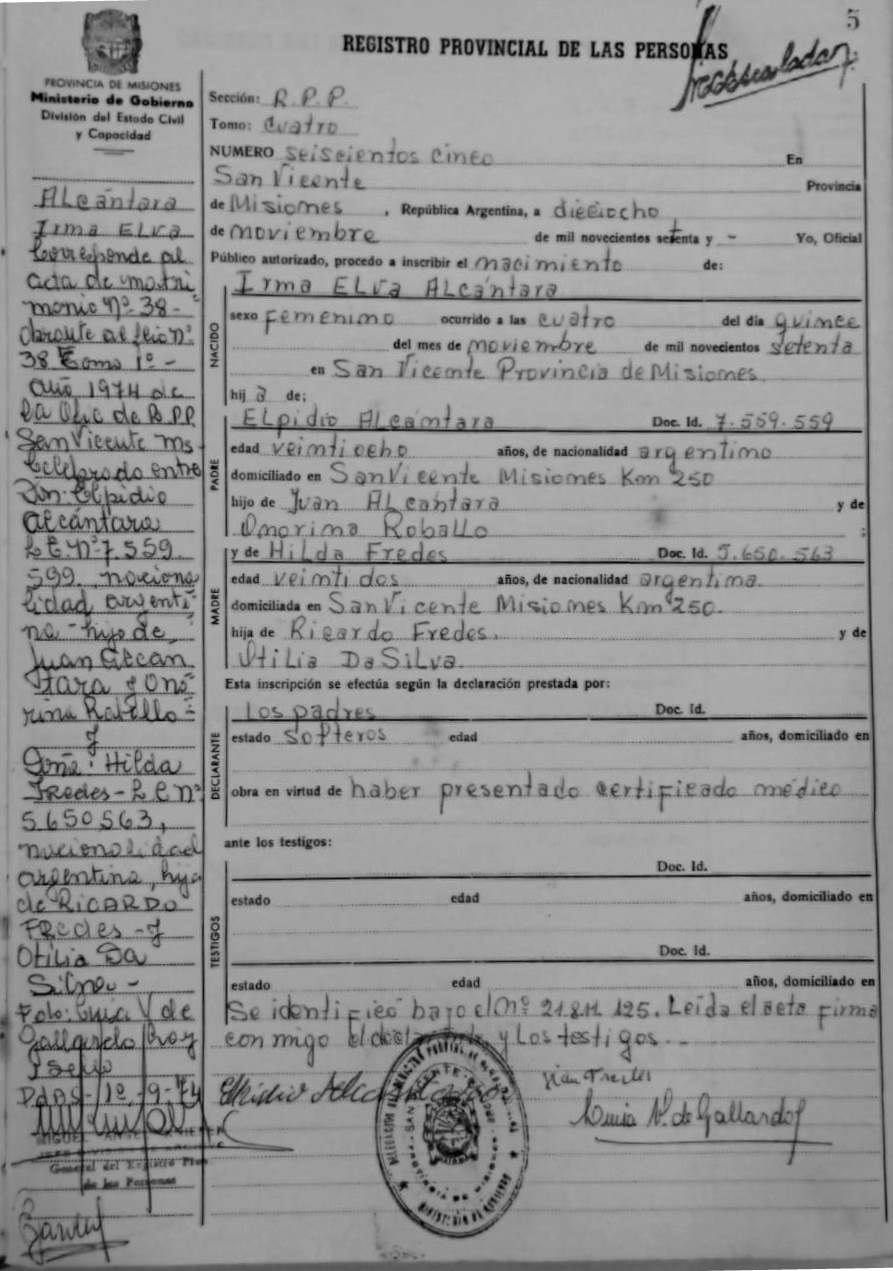 5
REGISTRO PROVINCIAL DE LAS PERSONAS
PROVINCIA DE MISIONES
Ministerio de Gobierno
División del Estado Civil
y Capacidad
Alcántara
Irma Elva
Corresponde al
acta de matri
monio Nº 38-
obrante al folio Nº
38 Tomo 1º-
año 1974 de
la Ofic de R.P.P.
San Vicente Ms
Celebrado entre
Don: Elpidio
Alcántara
L.E. Nº 7.559.
599 naciona
lidad argenti
na - hijo de
Juan Alcan
tara y Ono
rina Rabello-
y
Doña: Hilda
Fredes - L C Nº
5650563,
nacionalidad
argentina, hija
de RICARDO
FRedes - y
Otilia Da
Silva -
Gallardo
Pdas - 1º - 9 - 74
General del Registro Prov
de las Personas
Sección: R.P.P.
Tomo: Cuatro
NUMERO seiscientos cinco En
San Vicente Provincia
de Misiones, República Argentina, a dieciocho
de noviembre de mil novecientos setenta y - Yo, Oficial
Público autorizado, procedo a inscribir el nacimiento de:
NACIDO
Irma Elva Alcántara
sexo femenino ocurrido a las cuatro del día quince
del mes de noviembre de mil novecientos setenta
en San Vicente Provincia de Misiones.
hij a de;
PADRE
Elpidio Alcantara Doc. Id. 7.559.559
edad veintiocho años, de nacionalidad argentino
domiciliado en San Vicente Misiones Km 250
hijo de Juan Alcantara y de
Onorina Roballo ;
MADRE
y de Hilda Fredes Doc. Id. 5.650.563
edad veintidos años, de nacionalidad argentina.
domiciliada en San Vicente Misiones Km 250.
hija de Ricardo Fredes. y de
Otilia Da Silva.
Esta inscripción se efectúa según la declaración prestada por:
DECLARANTE
Los padres Doc. Id.
estado solteros edad años, domiciliado en
obra en virtud de haber presentado certificado medico
ante los testigos:
TESTIGOS
Doc. Id.
estado edad años, domiciliado en
Doc. Id.
estado edad años, domiciliado en
Se identificó bajo el Nº 21.811.125. Leída el acta firma
conmigo el y los testigos.
Luisa V. de Gallardo